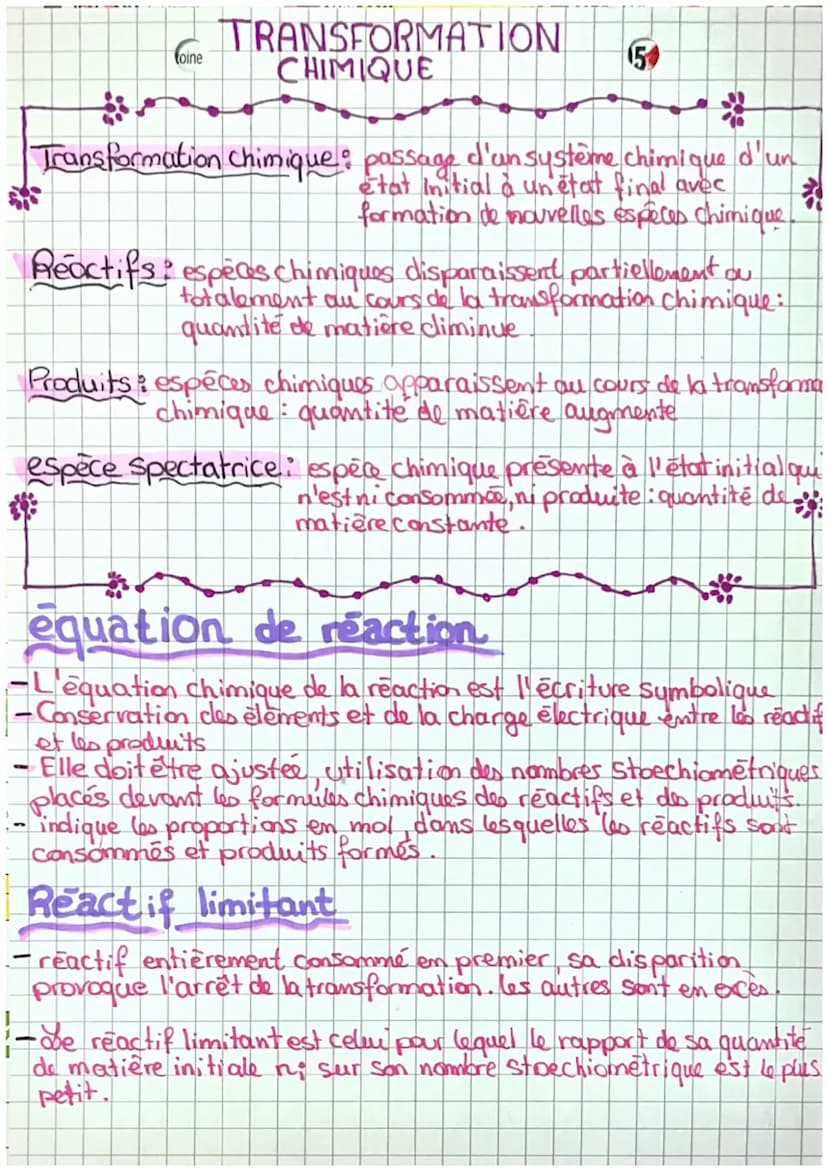 TRANSFORMATION
toine
5
CHIMIQUE
Transformation chimique : passage d'un système chimique d'un
état initial à un état final avec
formation de nouvelles espèces chimique.
Réactifs : espèces chimiques disparaissent partiellement ou
totalement au cours de la transformation chimique :
quantité de matière diminue.
Produits : espéces chimiques apparaissent au cours de la transforma
chimique : quantité de matière augmente
espèce spectatrice : espèce chimique présente à l'état initial qui
n'est ni consommée, ni produite : quantité de
matière constante.
équation de réaction
- L'équation chimique de la réaction est l'écriture symbolique
- Conservation des éléments et de la charge électrique entre les réactif
et les produits
- Elle doit être ajustée, utilisation des nombres stoechiométriques
placés devant les formules chimiques des réactifs et des produits.
- indique les proportions en mol, dans lesquelles les réactifs sont
consommés et produits formés.
Réactif limitant
- réactif entièrement consommé en premier, sa disparition
provoque l'arrêt de la transformation. Les autres sont en excès.
- Le réactif limitant est celui pour lequel le rapport de sa quantité
de matière initiale ni sur son nombre stoechiométrique est le plus
petit.